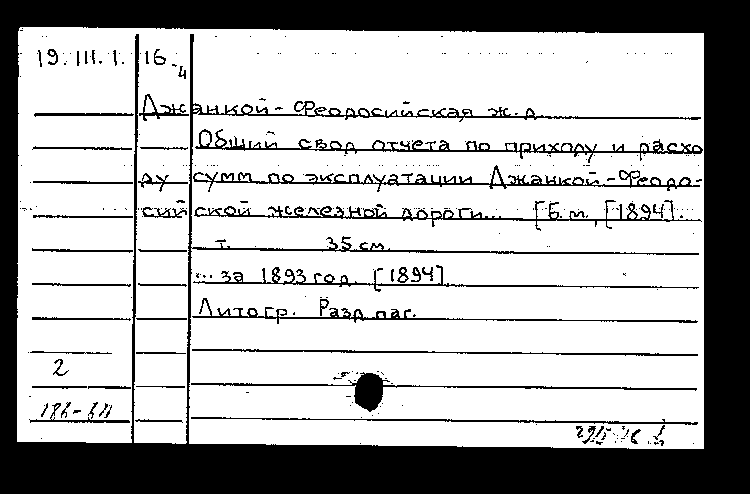 19. III. 1. 16-4
Джанкой-Феодосийская ж.д
Общий свод отчета по приходу и расхо
ду сумм по эксплуатации Джанкой-Феодо-
сийской железной дороги... [Б.м., [1894].
т. 35 см.
... за 1893 год. [1894]
Литогр. Разд. паг.
2